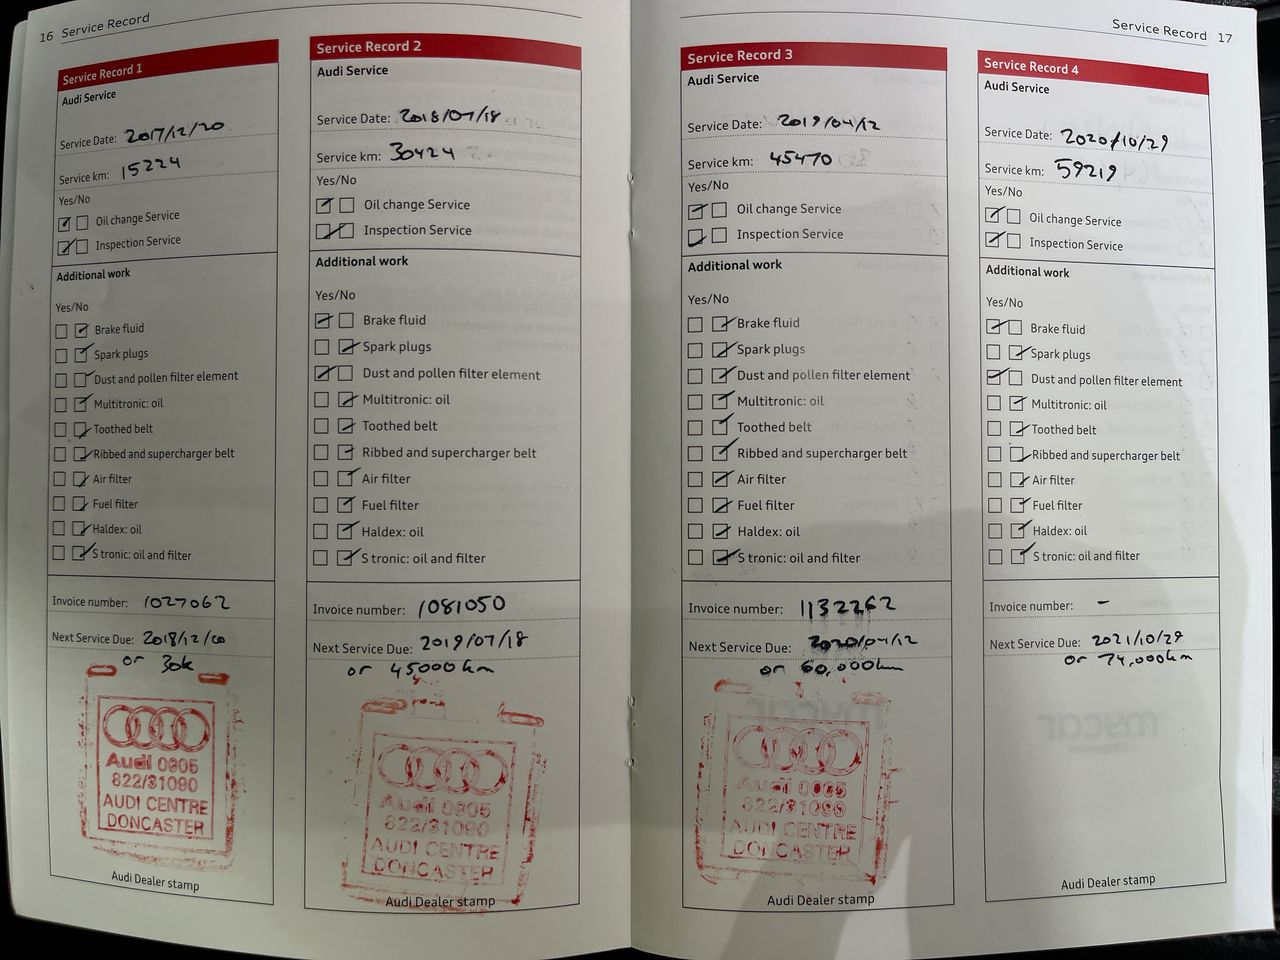 16 Service Record
Service Record 1
Audi Service
Service Date: 2017/12/20
Service km: 15224
Yes/No
Oil change Service
Inspection Service
Additional work
Yes/No
Brake fluid
Spark plugs
Dust and pollen filter element
Multitronic: oil
Toothed belt
Ribbed and supercharger belt
Air filter
Fuel filter
Haldex: oil
S tronic: oil and filter
Invoice number: 1027062
Next Service Due: 2018/12/20
or 30k
Audi 0905
822/31090
AUDI CENTRE
DONCASTER
Audi Dealer stamp
Service Record 2
Audi Service
Service Date: 2018/07/18
Service km: 30424
Yes/No
Oil change Service
Inspection Service
Additional work
Yes/No
Brake fluid
Spark plugs
Dust and pollen filter element
Multitronic: oil
Toothed belt
Ribbed and supercharger belt
Air filter
Fuel filter
Haldex: oil
S tronic: oil and filter
Invoice number: 1081050
Next Service Due: 2019/07/18
or 45000km
Audi 0905
822/31090
AUDI CENTRE
DONCASTER
Audi Dealer stamp
Service Record 17
Service Record 3
Audi Service
Service Date: 2019/04/12
Service km: 45470
Yes/No
Oil change Service
Inspection Service
Additional work
Yes/No
Brake fluid
Spark plugs
Dust and pollen filter element
Multitronic: oil
Toothed belt
Ribbed and supercharger belt
Air filter
Fuel filter
Haldex: oil
S tronic: oil and filter
Invoice number: 1132262
Next Service Due: 2020/04/12
or 60,000km
Audi 0905
822/31090
AUDI CENTRE
DONCASTER
Audi Dealer stamp
Service Record 4
Audi Service
Service Date: 2020/10/29
Service km: 59219
Yes/No
Oil change Service
Inspection Service
Additional work
Yes/No
Brake fluid
Spark plugs
Dust and pollen filter element
Multitronic: oil
Toothed belt
Ribbed and supercharger belt
Air filter
Fuel filter
Haldex: oil
S tronic: oil and filter
Invoice number: -
Next Service Due: 2021/10/29
or 74,000km
Audi Dealer stamp